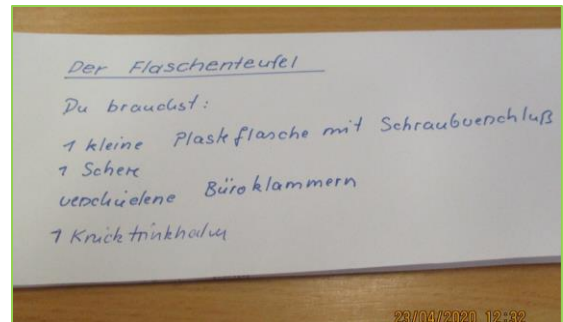 Der Flaschenteufel
Du brauchst:
1 kleine Plastflasche mit Schraubverschluß
1 Schere
verschiedene Büroklammern
1 Knicktrinkhalm
23/04/2020 12:32